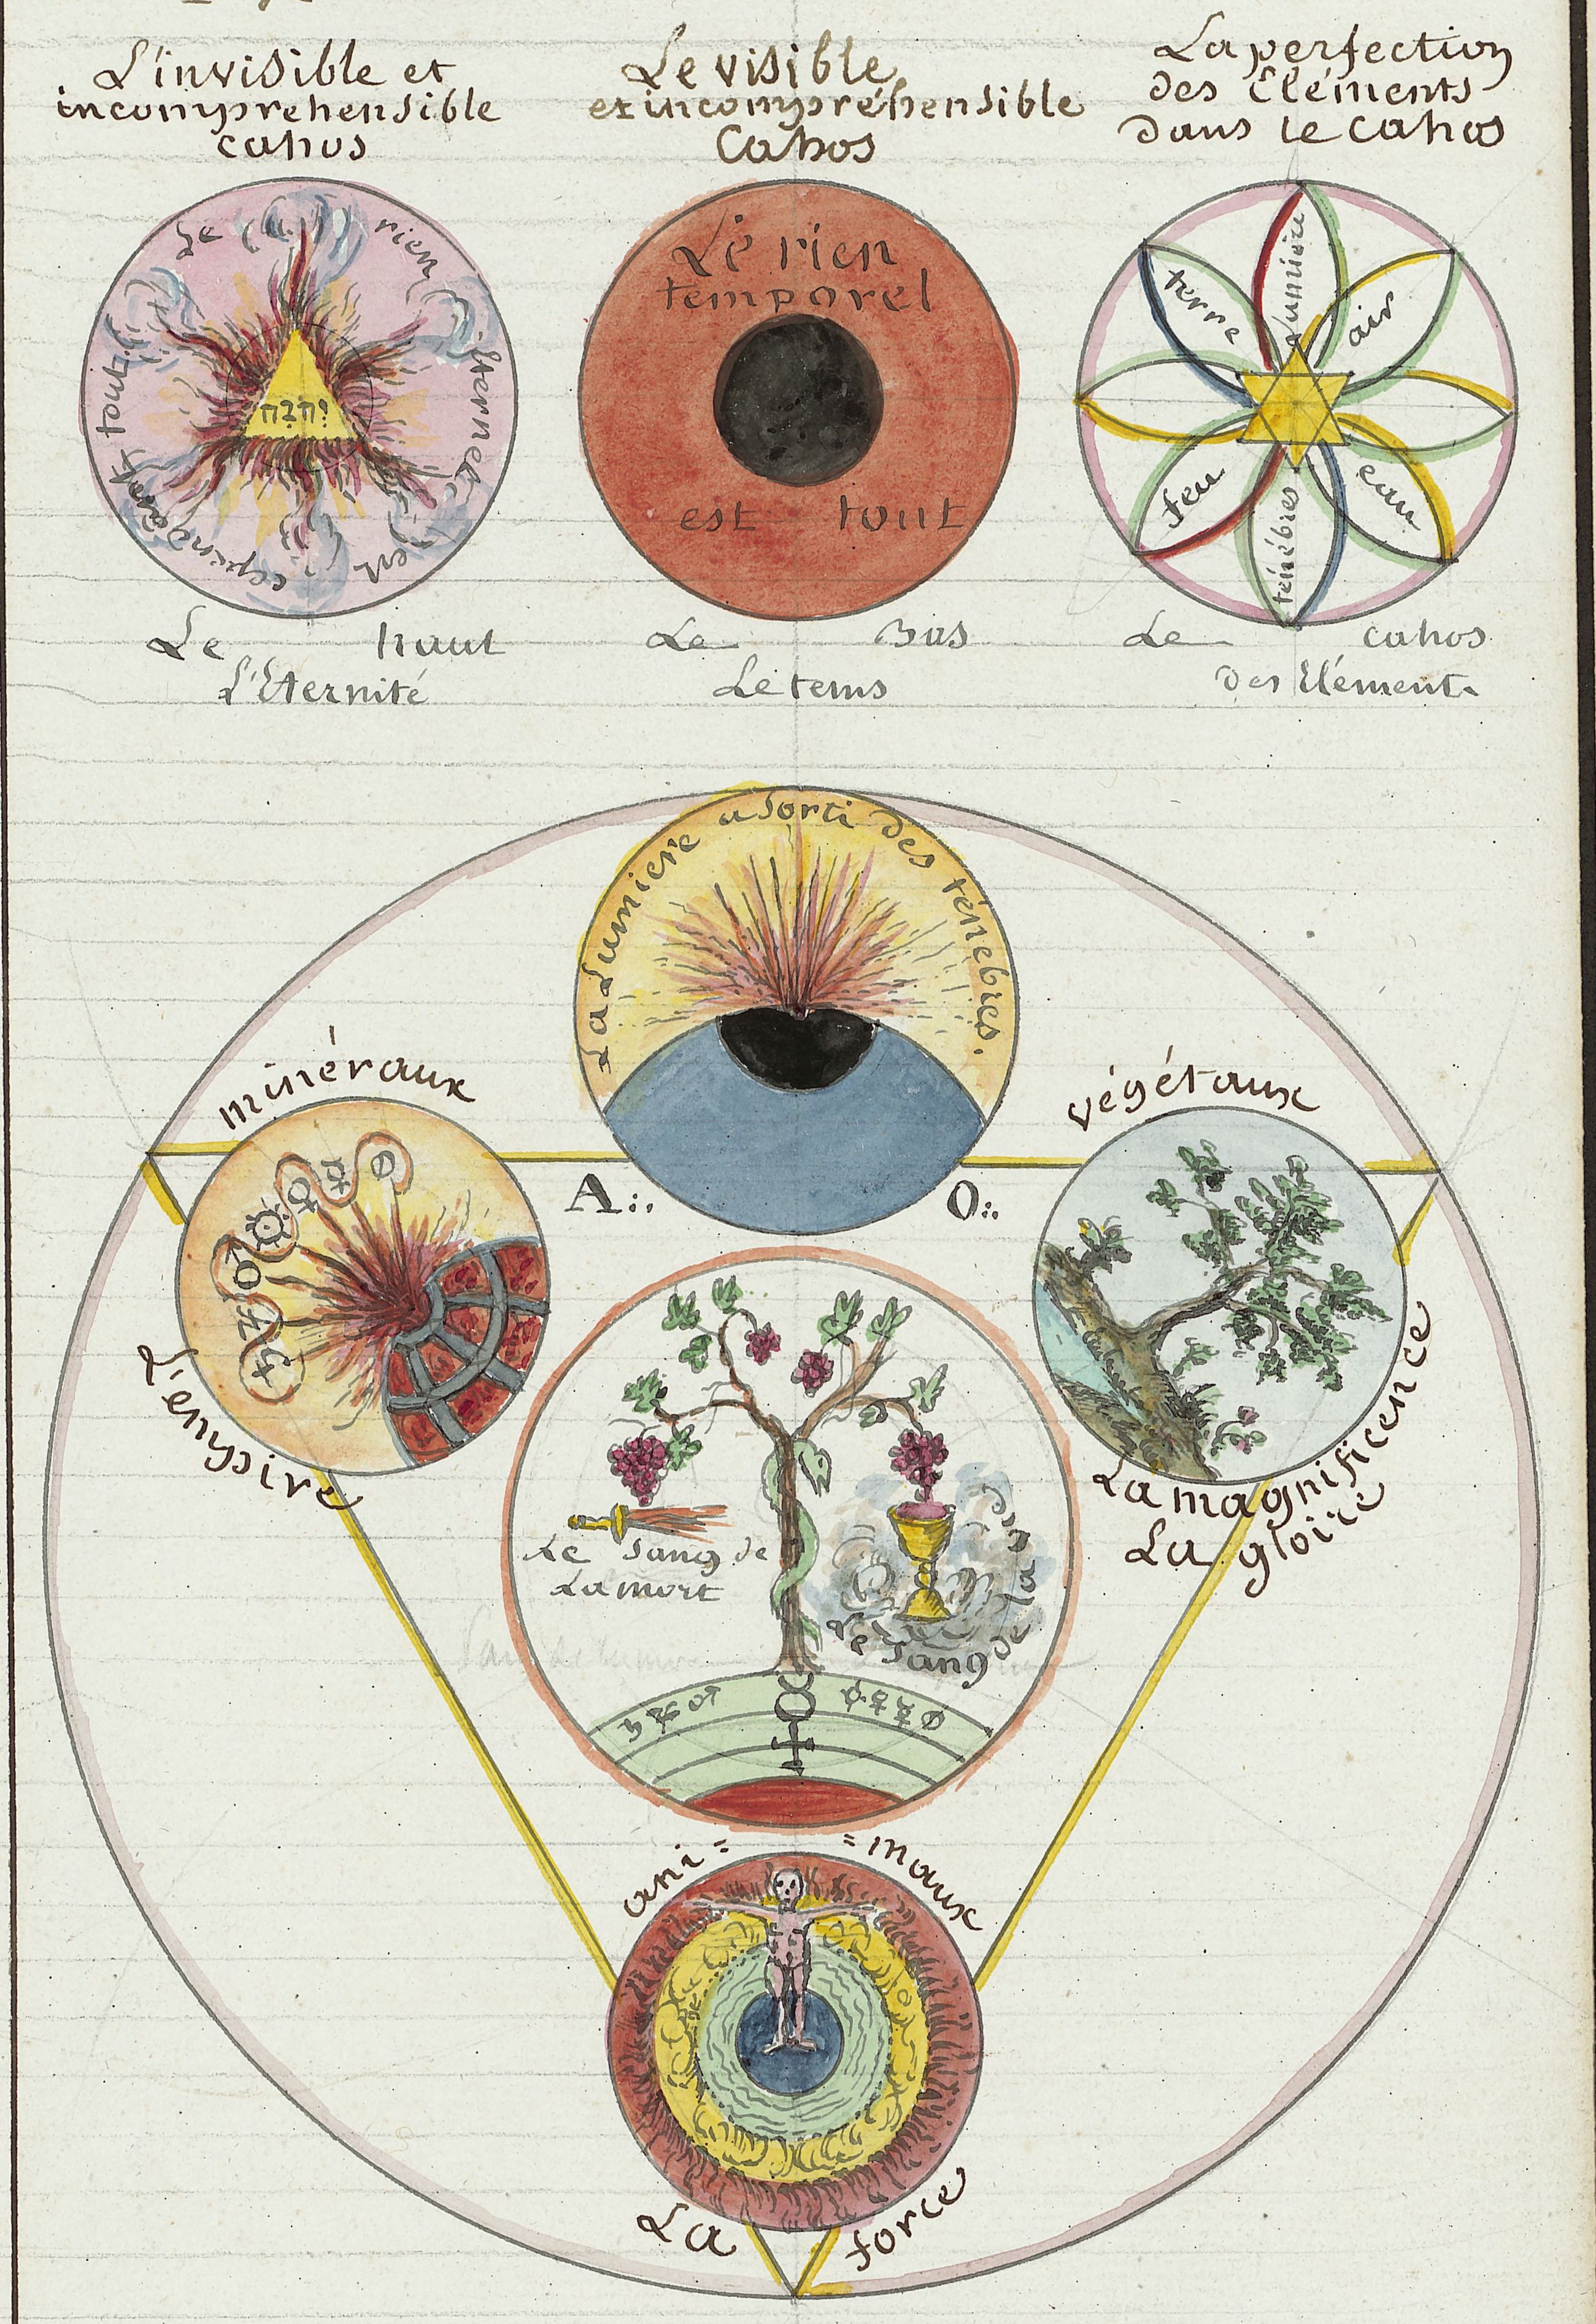 L'invisible et
incomprehensible
cahos
Le visible
et incompréhensible
Cahos
La perfection
des Eléments
dans le cahos
Le rien éternel est
cependant tout
יהוה
Le rien
temporel
est tout
terre
Lumiere
air
feu
ténébres
eau
Le haut
L'Eternité
Le Bas
Le tems
Le cahos
des Elément.
La Lumiere a sorti des ténebres.
minéraux
végétaux
A O
L'empire
La magnificence
La gloire
Le sang de
La mort
Le sang de la vie
♃ ♂ ☿
ani= =maux
La force